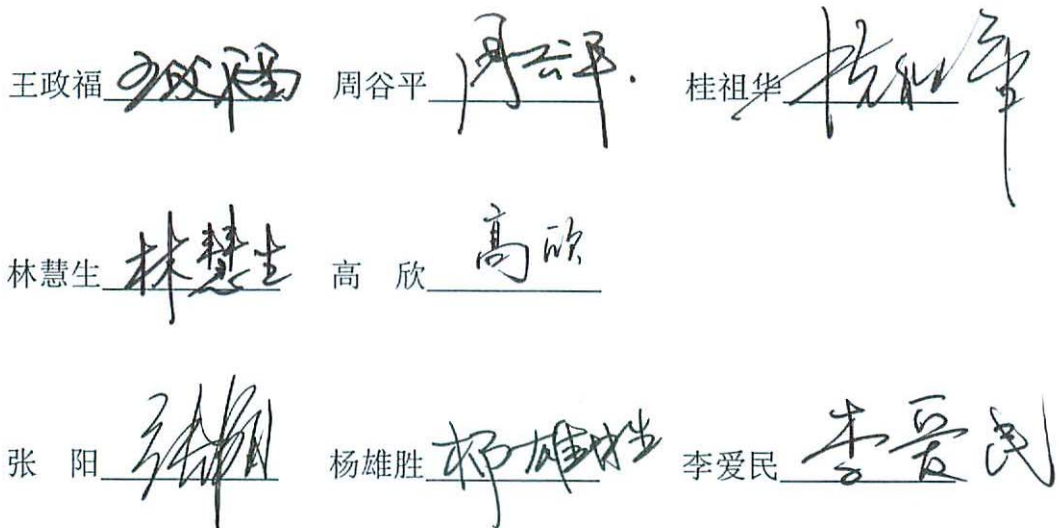 王政福 王政福 周谷平 周谷平 桂祖华 桂祖华
林慧生 林慧生 高 欣 高欣
张 阳 张阳 杨雄胜 杨雄胜 李爱民 李爱民